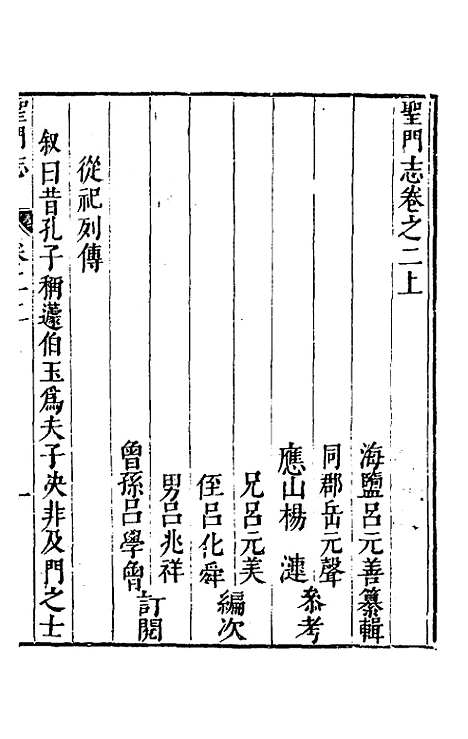 聖門志卷之二上
海鹽呂元善纂輯
同郡岳元聲
應山楊漣
參考
兄呂元美
侄呂化舜
編次
男呂兆祥
曾孫呂學曾
訂閱
從祀列傳
叙曰昔孔子稱蘧伯玉爲夫子决非及門之士
聖門志
卷二
一